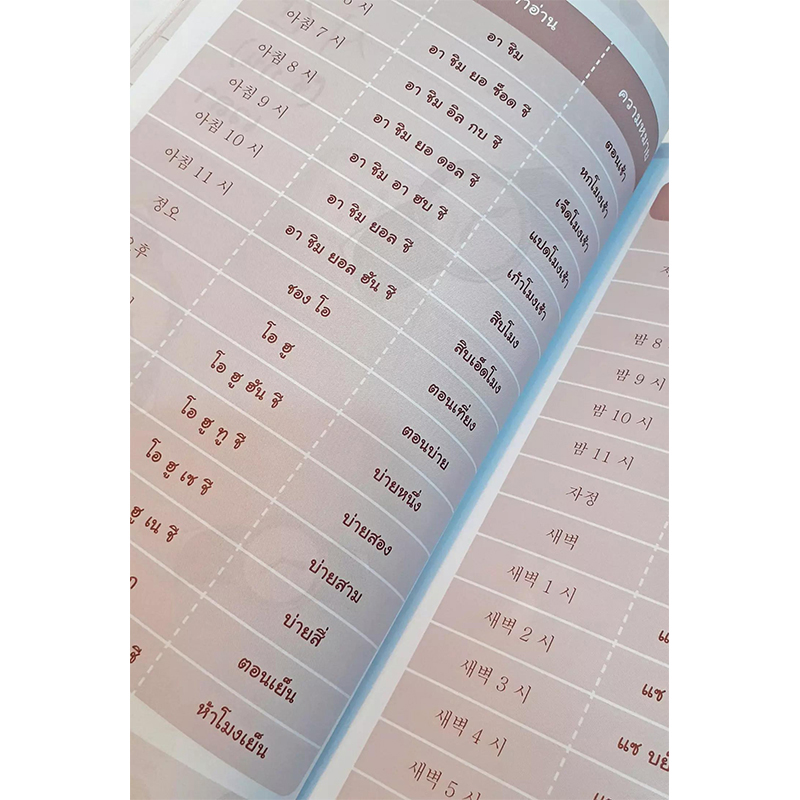 ความหมาย
อา ชิม ตอนเช้า
6 시 อา ชิม ยอ ซ็อด ชี หกโมงเช้า
아침 7 시 อา ชิม อิล กบ ชี เจ็ดโมงเช้า
아침 8 시 อา ชิม ยอ ดอล ชี แปดโมงเช้า
아침 9 시 อา ชิม อา ฮบ ชี เก้าโมงเช้า
아침 10 시 อา ชิม ยอล ชี สิบโมง
아침 11 시 อา ชิม ยอล ฮัน ชี สิบเอ็ดโมง
정오 ชอง โอ ตอนเที่ยง
후 โอ ฮู ตอนบ่าย
โอ ฮู ฮัน ชี บ่ายหนึ่ง
โอ ฮู ทู ชี บ่ายสอง
โอ ฮู เซ ชี บ่ายสาม
ฮู เน ชี บ่ายสี่
ตอนเย็น
ชี ห้าโมงเย็น
밤 8
밤 9 시
밤 10 시
밤 11 시
자정
새벽
새벽 1 시
새벽 2 시
새벽 3 시 แซ
새벽 4 시 แซ
새벽 5 시